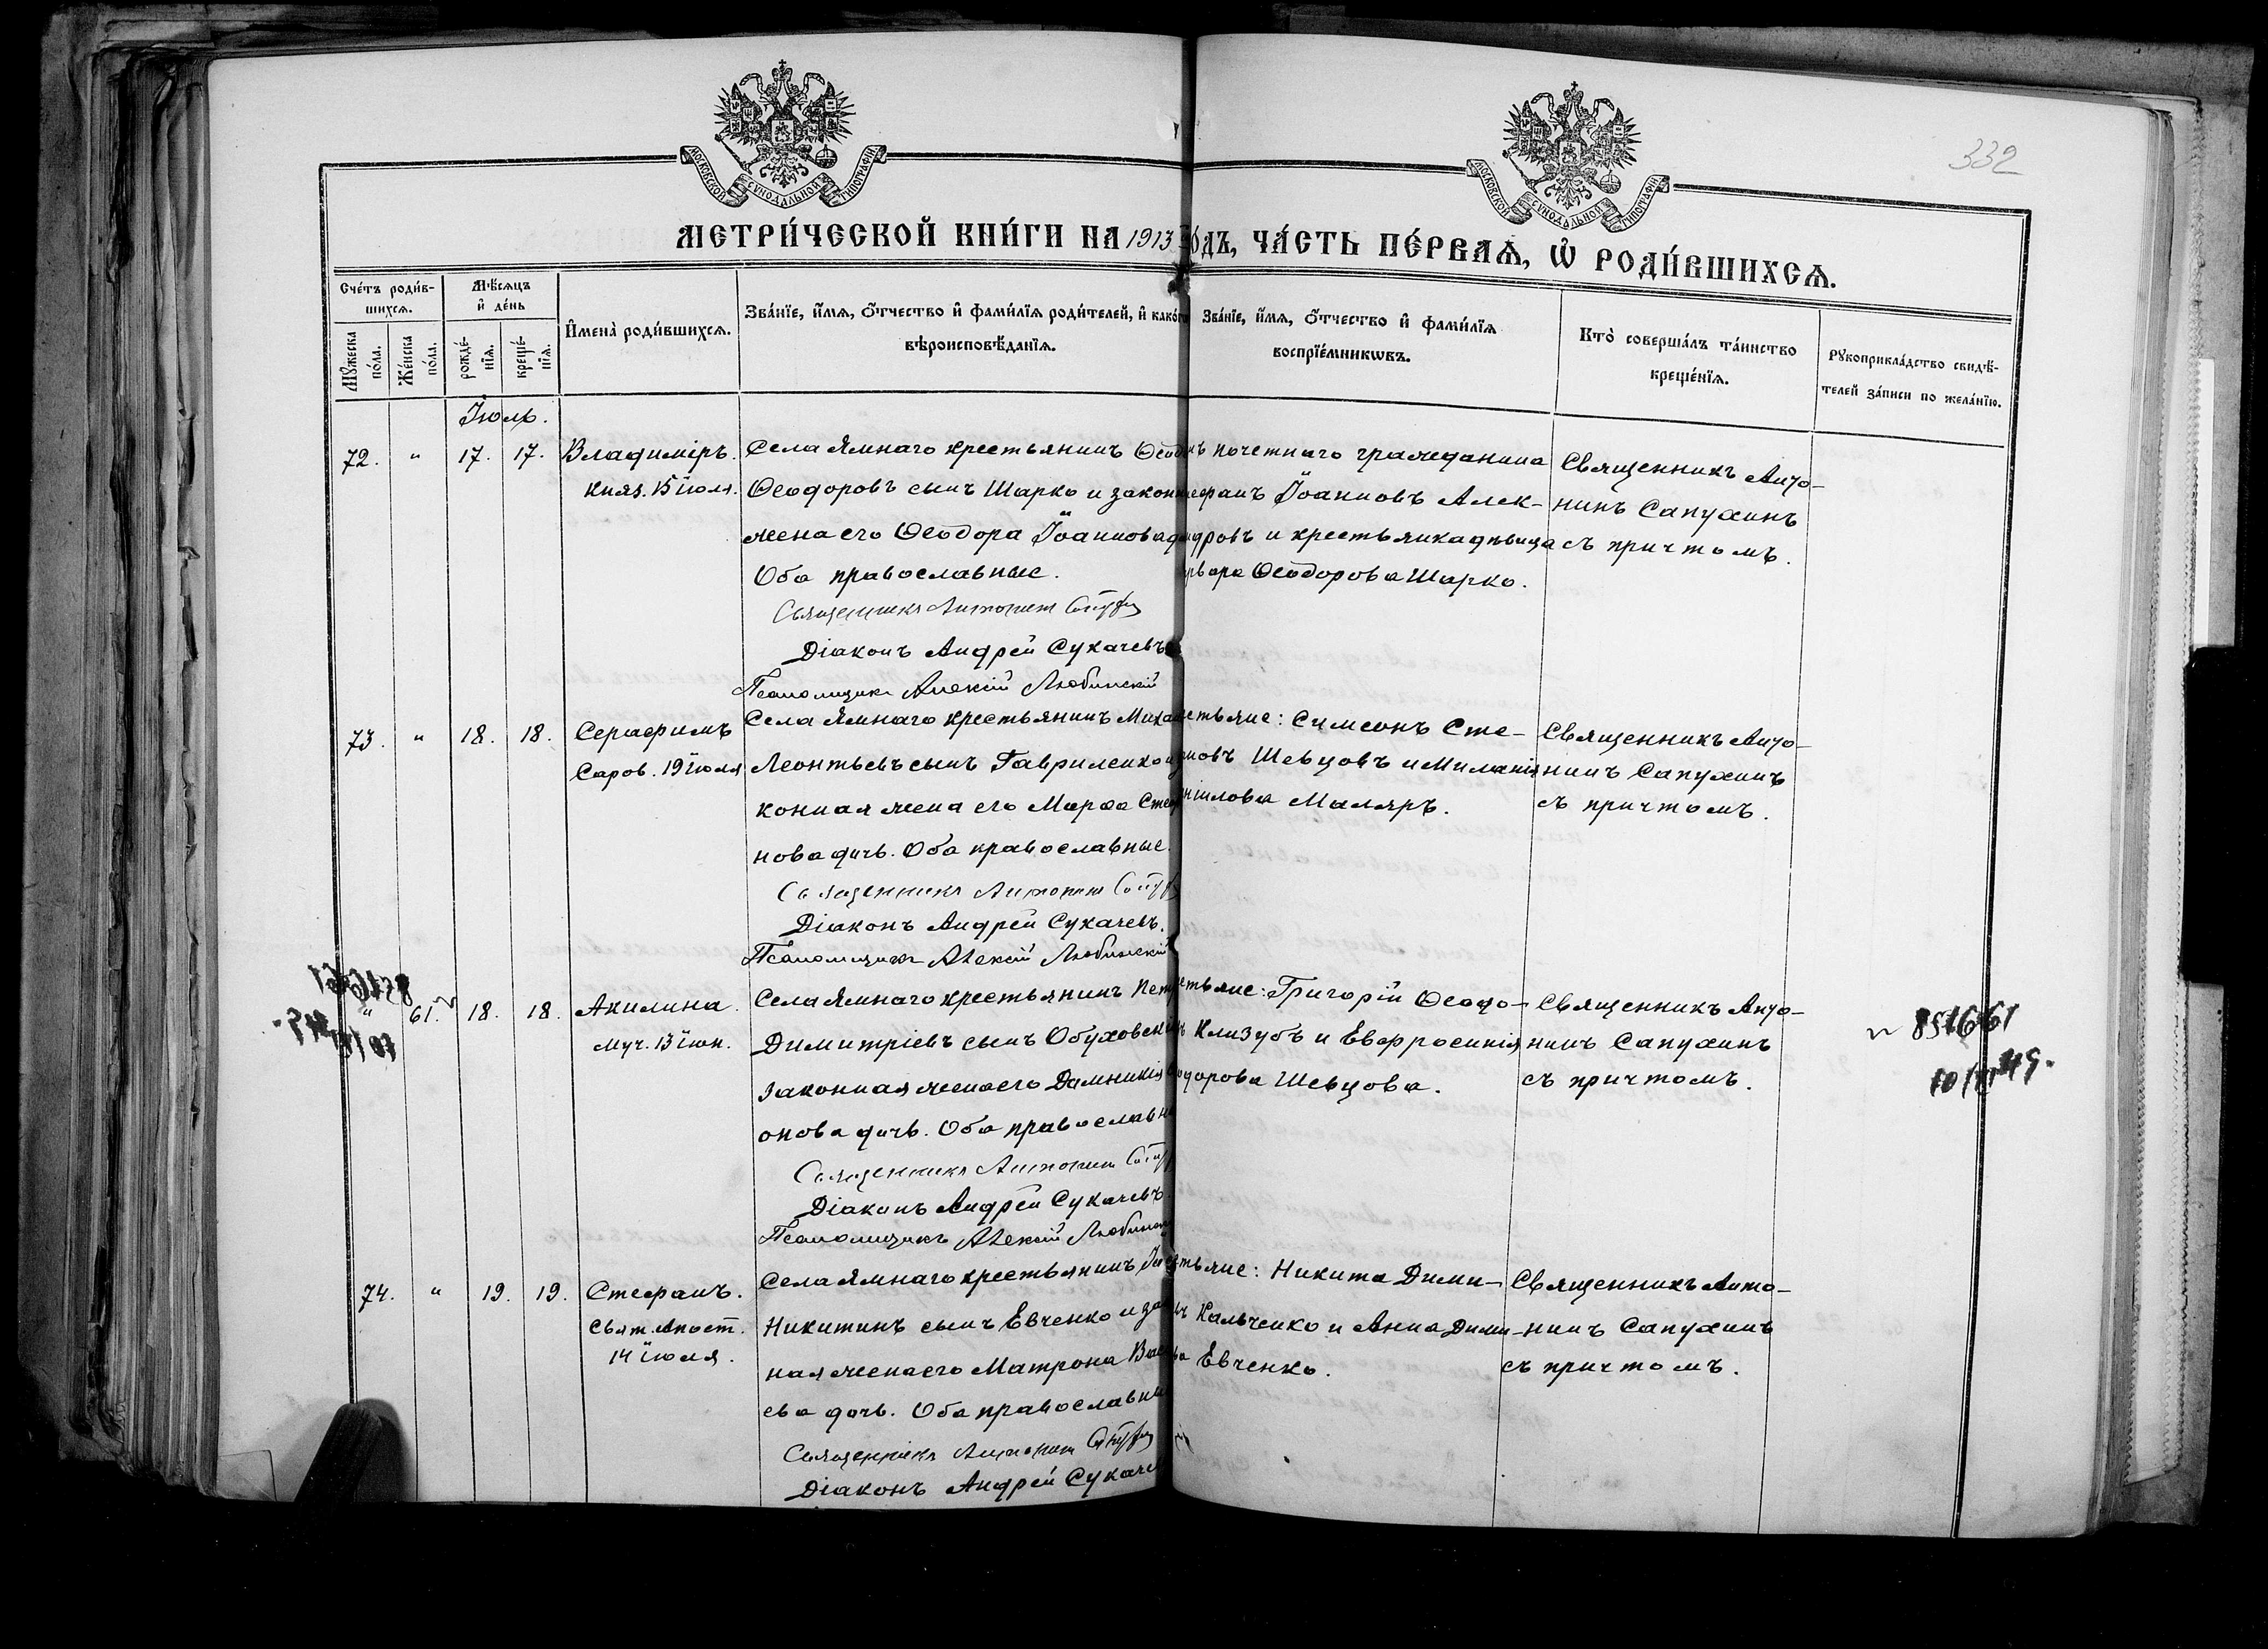 МОСКОВСКОЙ СѴНОДАЛЬНОЙ ТИПОГРАФІИ
МОСКОВСКОЙ СѴНОДАЛЬНОЙ ТИПОГРАФІИ
332
МЕТРИ́ЧЕСКОЙ КНИ́ГИ НА 1913 ГО́ДЪ, ЧА́СТЬ ПЕ́РВАѦ, Ѡ РОДИ́ВШИХСѦ.
Сче́тъ роди́в-
шихсѧ.
Мѣ́сѧцъ
и де́нь
Мꙋ́жеска по́ла.
Же́нска по́ла.
рожде́-
нїѧ.
креще́-
нїѧ.
Имена̀ роди́вшихсѧ.
Зва́нїе, и́мѧ, ѻ́тчество и фами́лїѧ роди́телей, и како́гѡ
вѣроисповѣ́данїѧ.
Зва́нїе, и́мѧ, ѻ́тчество и фами́лїѧ
воспрїе́мникѡвъ.
Кто̀ соверша́лъ та́инство
креще́нїѧ.
Рꙋкоприкла́дство свидѣ́-
телей за́писи по жела́нїю.
Іюль.
72. " 17. 17. Владиміръ. Княз. 15 Іюля.
Села Ямнаго крестьянинъ Ѳеод
Ѳеодоровъ сынъ Шарко и законн
жена его Ѳеодора Іоаннова д
Оба православные.
Священникъ Антонинъ
Діаконъ Андрей Сукачевъ
Псаломщикъ Алексій Любинскій
нъ почетнаго гражданина
ефанъ Іоанновъ Алек-
ндровъ и крестьянка дѣвица
рвара Ѳеодорова Шарко.
Священникъ Анто-
нинъ Сапухинъ
съ причтомъ.
73. " 18. 18. Серафимъ Саров. 19 Іюля
Села Ямнаго крестьянинъ Миха
Леонтьевъ сынъ Гавриленко и
конная жена его Марѳа Сте
нова дочь. Оба православные.
Священникъ Антонинъ
Діаконъ Андрей Сукачевъ.
Псаломщикъ Алексій Любинскій
стьяне: Симеонъ Сте-
новъ Шевцовъ и Миланія
ниилова Маляръ.
Священникъ Анто-
нинъ Сапухинъ
съ причтомъ.
" 61. 18. 18. Акилина. Муч. 13 Іюн.
Села Ямнаго крестьянинъ Пет
Димитріевъ сынъ Обуховск
законная жена его Домникія
онова дочь. Оба православн
Священникъ Антонинъ
Діаконъ Андрей Сукачевъ.
Псаломщикъ Алексій Любинск
стьяне: Григорій Ѳеодо-
Клизубъ и Евфросинія
одорова Шевцова.
Священникъ Анто-
нинъ Сапухинъ
съ причтомъ.
851661
74. " 19. 19. Стефанъ. Свят. Апост. 14 Іюля.
Села Ямнаго крестьянинъ
Никитинъ сынъ Евченко и за
ная жена его Матрона Ва
ева дочь. Оба православн
Священникъ Антонинъ
Діаконъ Андрей Сукаче
стьяне: Никита Дими-
Кальченко и Анна Дими-
Евченко.
Священникъ Анто-
нинъ Сапухинъ
съ причтомъ.